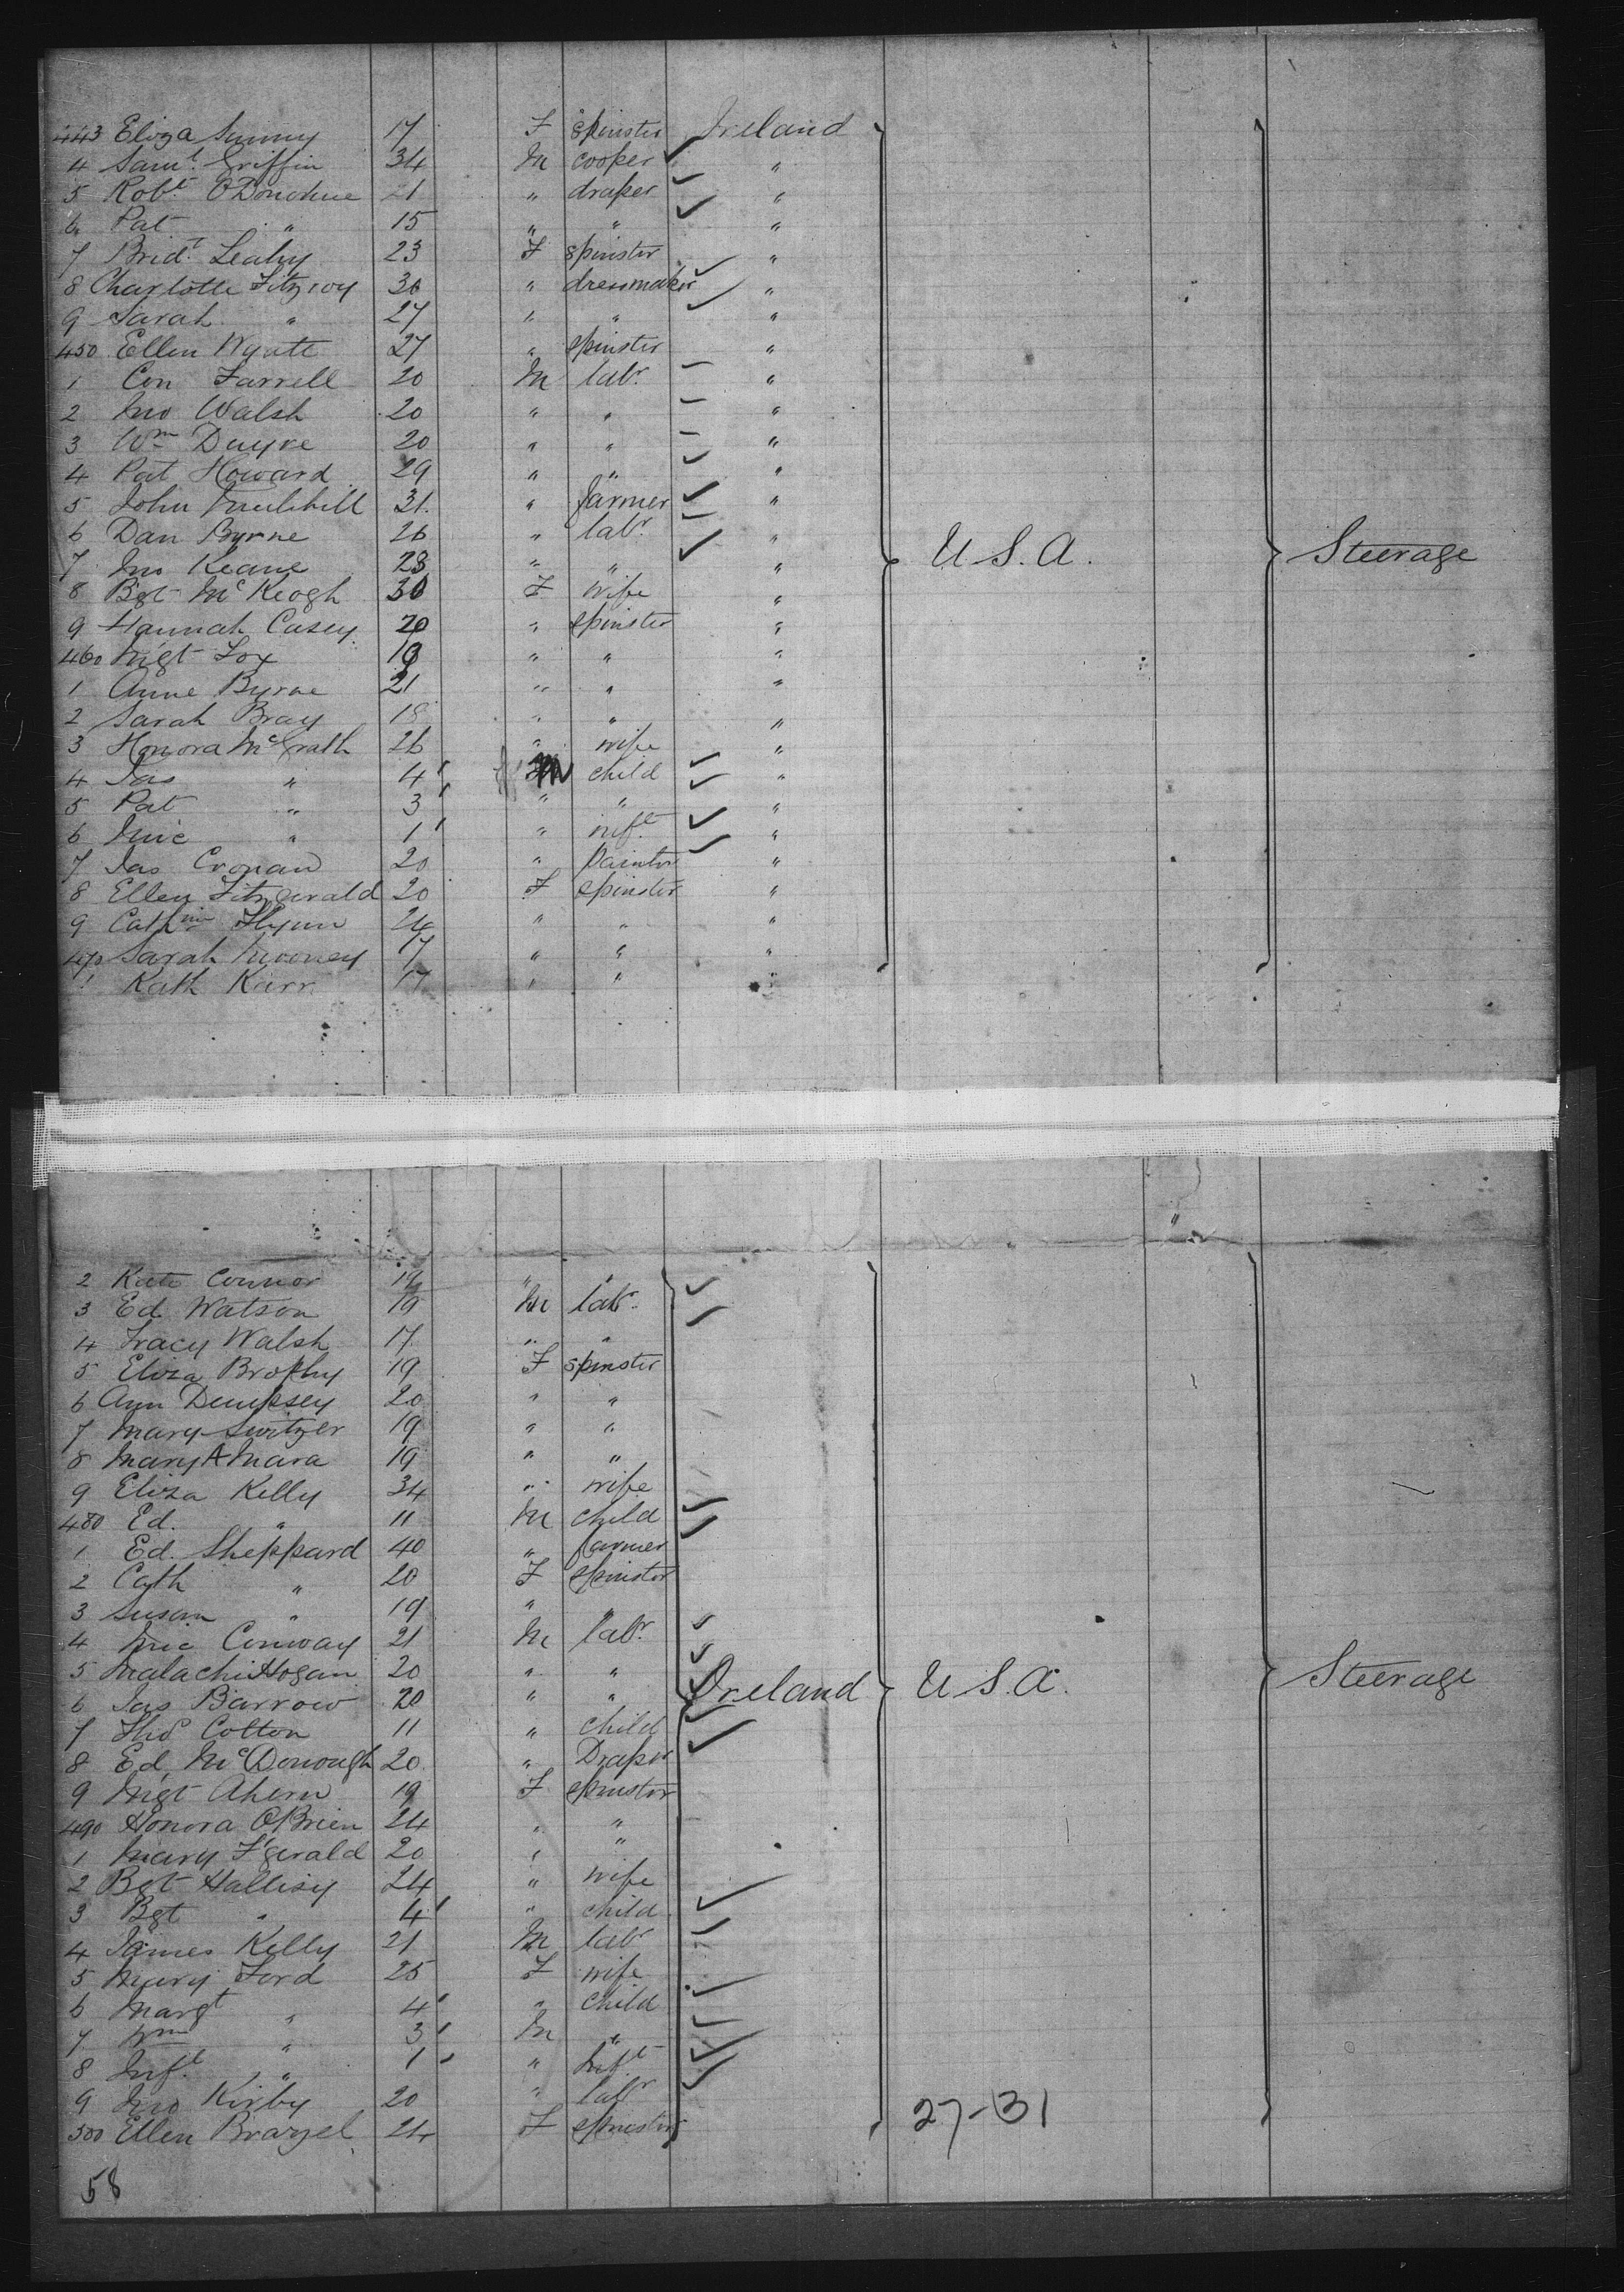 443 Eliza Sunny 17 F spinster Ireland
4 Saml. Griffin 34 M cooper "
5 Robt O'Donohue 21 " draper "
6 Pat " 15 " " "
7 Bridt. Leahy 23 F spinster "
8 Charlotte Fitzroy 36 " dressmaker "
9 Sarah " 27 " " "
450 Ellen Wyatt 27 " spinster "
1 Con Farrell 20 M labr. "
2 Jno Walsh 20 " " "
3 Wm Dwyre 20 " " "
4 Pat Howard 29 " " "
5 John Mulchill 31. " farmer "
6 Dan Byrne 26 " labr. "
7 Jno Keane 23 " " " U.S.A. Steerage
8 Bgt McKeogh 30 F wife "
9 Hannah Casey 20 " spinster "
460 Mgt Fox 19 " " "
1 Anne Byrne 21 " " "
2 Sarah Bray 18 " " "
3 Honora McGrath 26 " wife "
4 Jas " 4' M child "
5 Pat " 3' " " "
6 Mic " 1' " inft. "
7 Jas Cronan 20 " Painter "
8 Ellen Fitzgerald 20 F spinster "
9 Cathne Flynn 24 " " "
470 Sarah Mooney 17 " " "
1 Kath Karr 17 " " "
2 Kate Connor 19 " "
3 Ed Watson 19 M labr.
4 Tracy Walsh 17 " "
5 Eliza Brophy 19 F spinster
6 Ann Dempsey 20 " "
7 Mary Switzer 19 " "
8 Mary A Mara 19 " "
9 Eliza Kelly 34 " wife
480 Ed. " 11 M child
1 Ed. Sheppard 40 " farmer
2 Cath " 20 F spinster
3 Susan " 19 " "
4 Mic Conway 21 M labr.
5 Malachi Hogan 20 " "
6 Jas Barrow 20 " " Ireland U.S.A. Steerage
7 Thos Colton 11 " child
8 Ed. McDonough 20 " Draper
9 Mgt Ahern 19 F spinster
490 Honora O'Brien 24 " "
1 Mary F'gerald 20 " "
2 Bgt Hallisy 24 " wife
3 Bgt " 4' " child
4 James Kelly 21 M labr
5 Mary Ford 25 F wife
6 Margt " 4' " child
7 Wm " 3' M "
8 Inft. " 1' " Inft
9 Jno Kirby 20 " labr
500 Ellen Brazel 24 F spinster 27-31
58